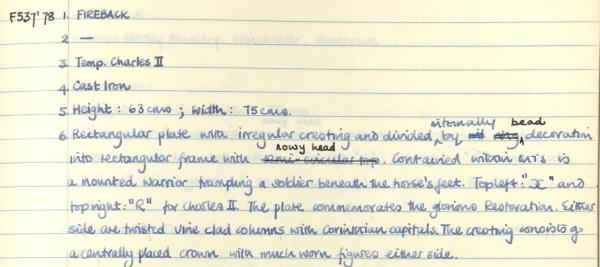 F537'78 1. FIREBACK
2 —
3. Temp. Charles II
4. Cast Iron
5. Height: 63 cms; Width: 75 cms.
6. Rectangular plate with irregular cresting and divided internally by bead decoration
into rectangular frame with semi-circular top nowy head. Contained within this is
a mounted warrior trampling a soldier beneath the horse's feet. Top left: "C" and
top right: "R" for Charles II. The plate commemorates the glorious Restoration. Either
side are twisted vine clad columns with Corinthian capitals. The cresting consists of
a centrally placed crown with much worn figures either side.